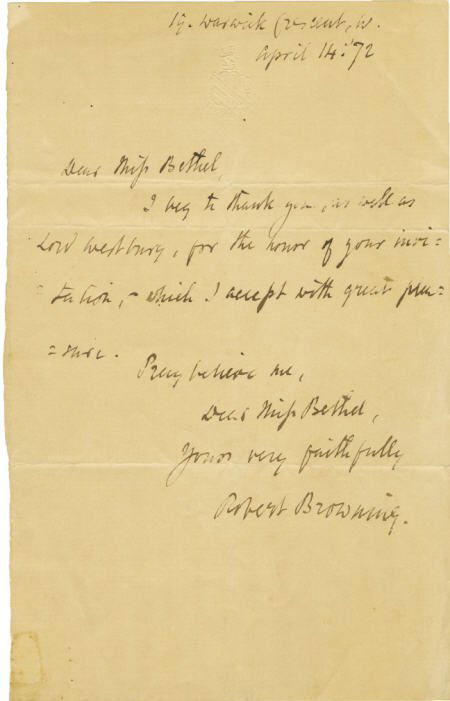 19. Warwick Crescent, W.
April 14. '72
Dear Miss Bethel,
I beg to thank you, as well as
Lord Westbury, for the honor of your invi-
-tation, - which I accept with great plea=
=sure.
Pray believe me,
Dear Miss Bethel,
Yours very faithfully
Robert Browning.